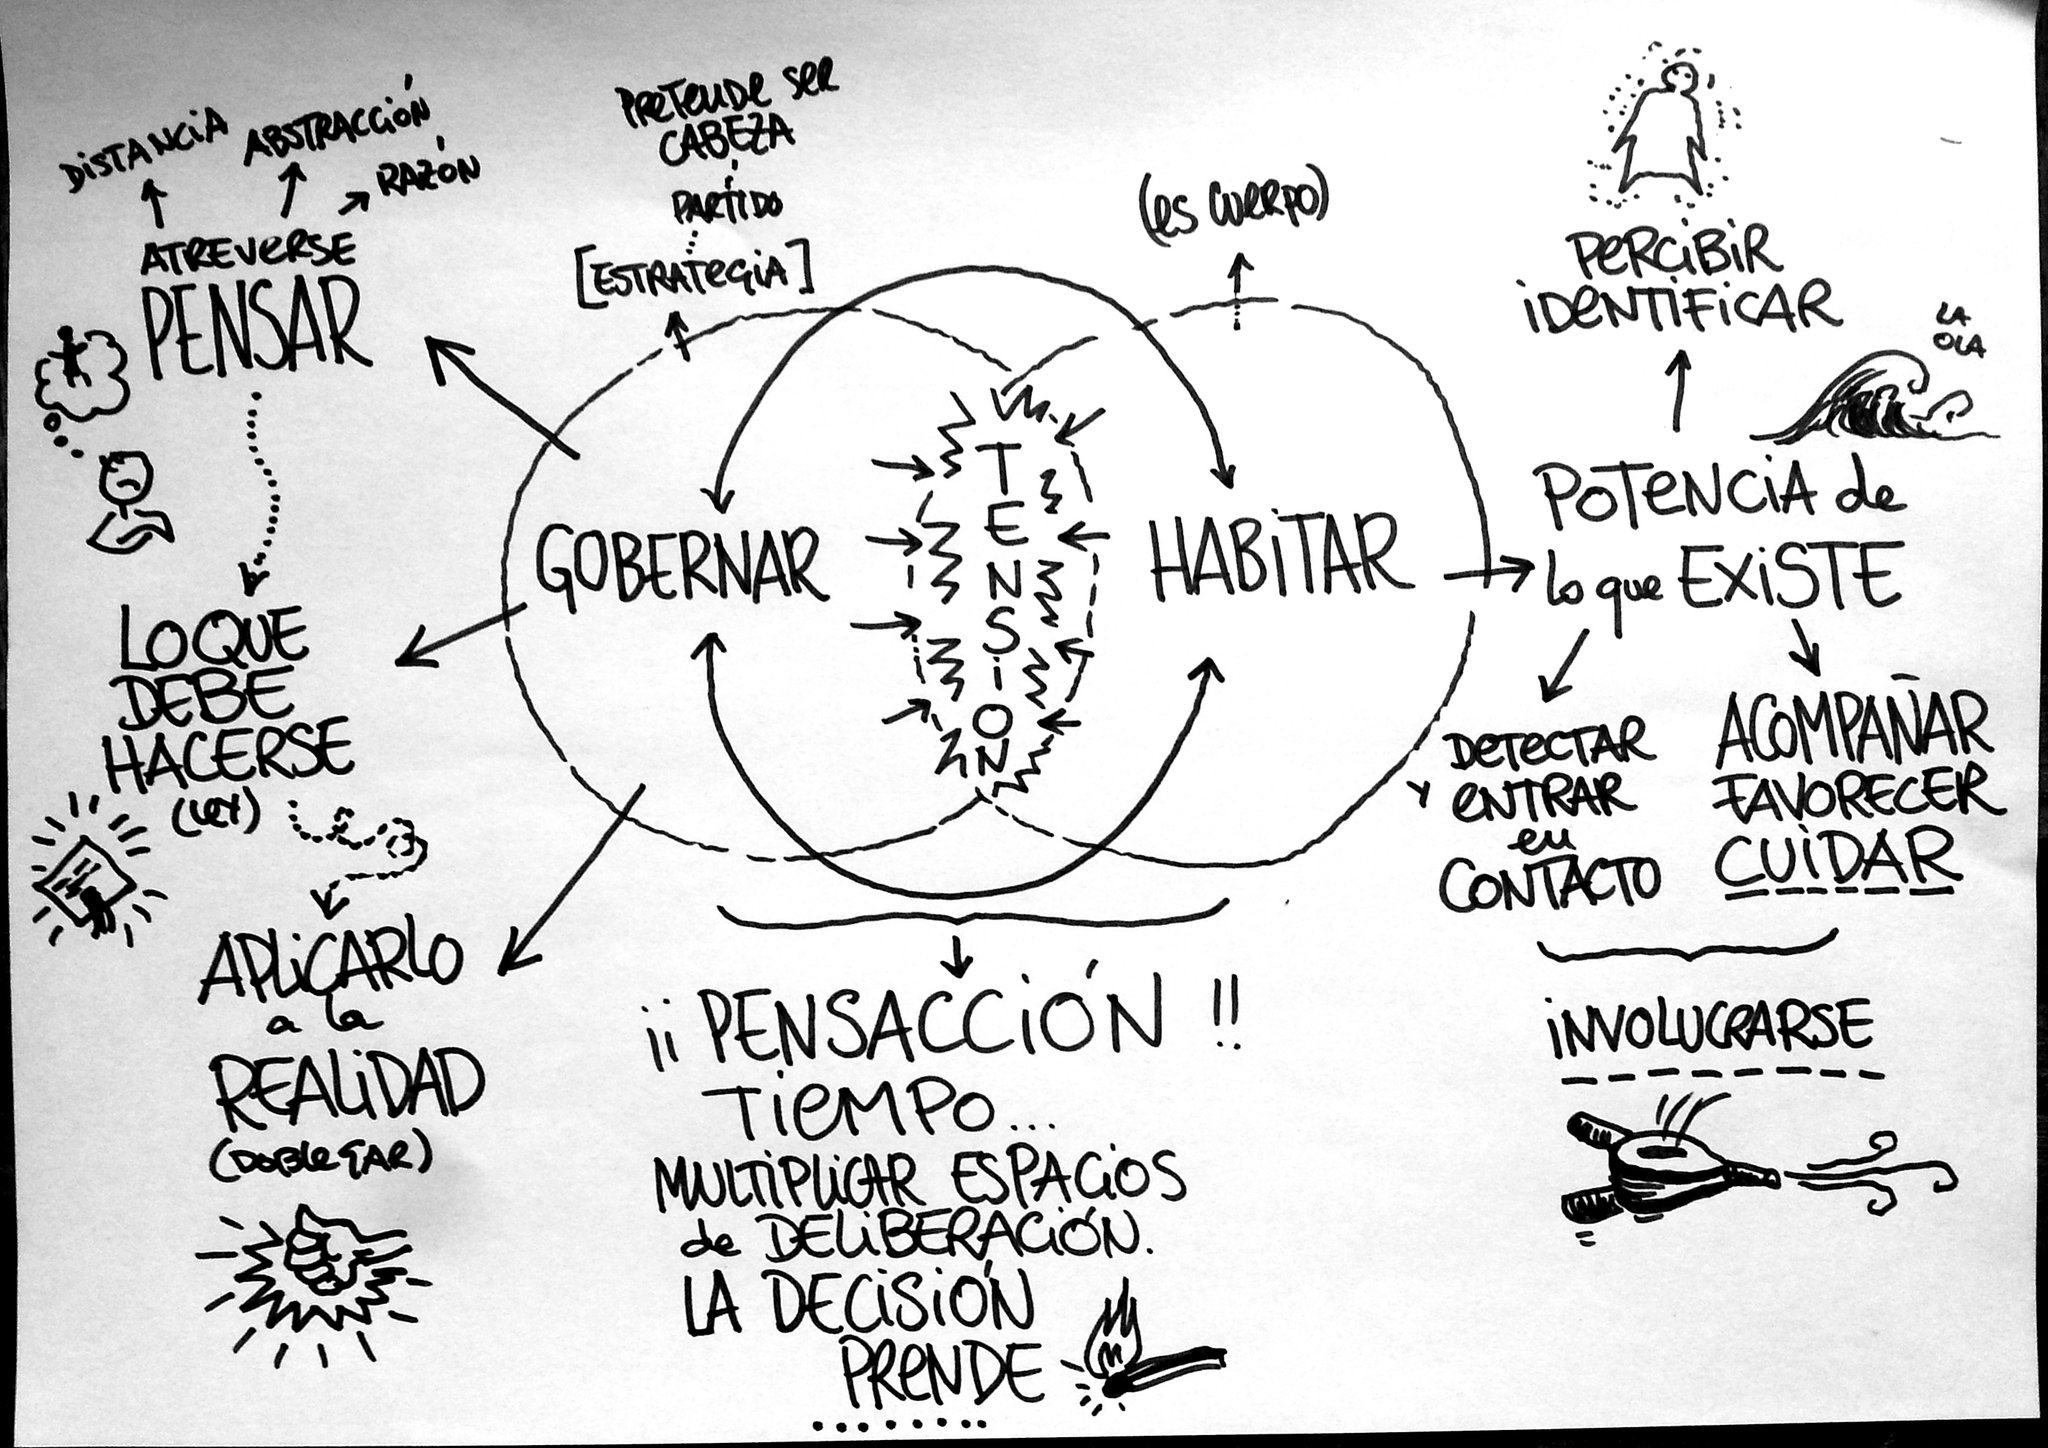 DISTANCIA
ABSTRACCIÓN
RAZÓN
ATREVERSE
PENSAR
LO QUE
DEBE
HACERSE
(LEY)
APLICARLO
a la
REALIDAD
(DOBLEGAR)
PRETENDE SER
CABEZA
PARTIDO
[ESTRATEGIA]
GOBERNAR
TENSIÓN
(ES CUERPO)
HABITAR
¡¡PENSACCIÓN!!
TIEMPO...
MULTIPLICAR ESPACIOS
de DELIBERACIÓN.
LA DECISIÓN
PRENDE
PERCIBIR
IDENTIFICAR
LA
OLA
POTENCIA de
lo que EXISTE
DETECTAR
Y ENTRAR
en
CONTACTO
ACOMPAÑAR
FAVORECER
CUIDAR
INVOLUCRARSE